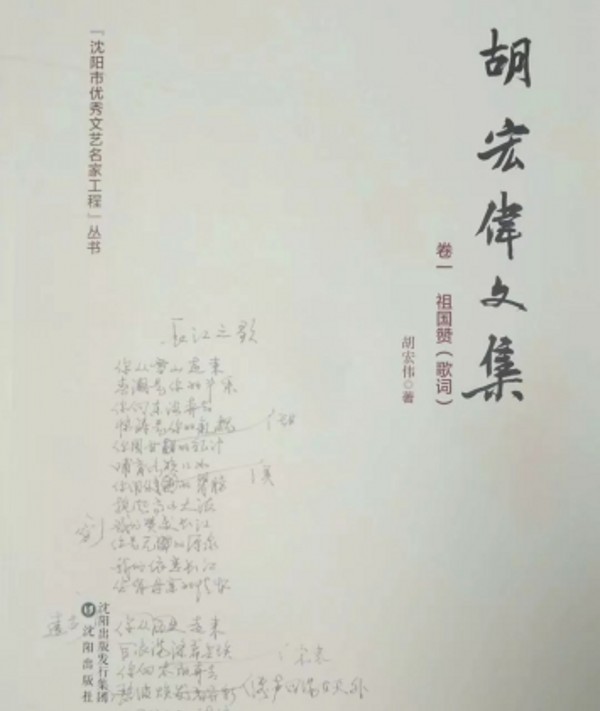 胡宏伟文集
卷一 祖国赞（歌词）
胡宏伟◎著
『沈阳市优秀文艺名家工程』丛书
长江之歌
你从雪山走来
春潮是你的丰采
你向东海奔去
惊涛是你的气概
你用甘甜的乳汁
哺育各族儿女
你用健美的臂膀
挽起高山大海
我们赞美长江
你是无穷的源泉
我们依恋长江
你有母亲的情怀
远古
你从历史走来
巨浪荡涤着尘埃
你向未来奔去
涛声回荡在天外
沈阳出版发行集团
沈阳出版社